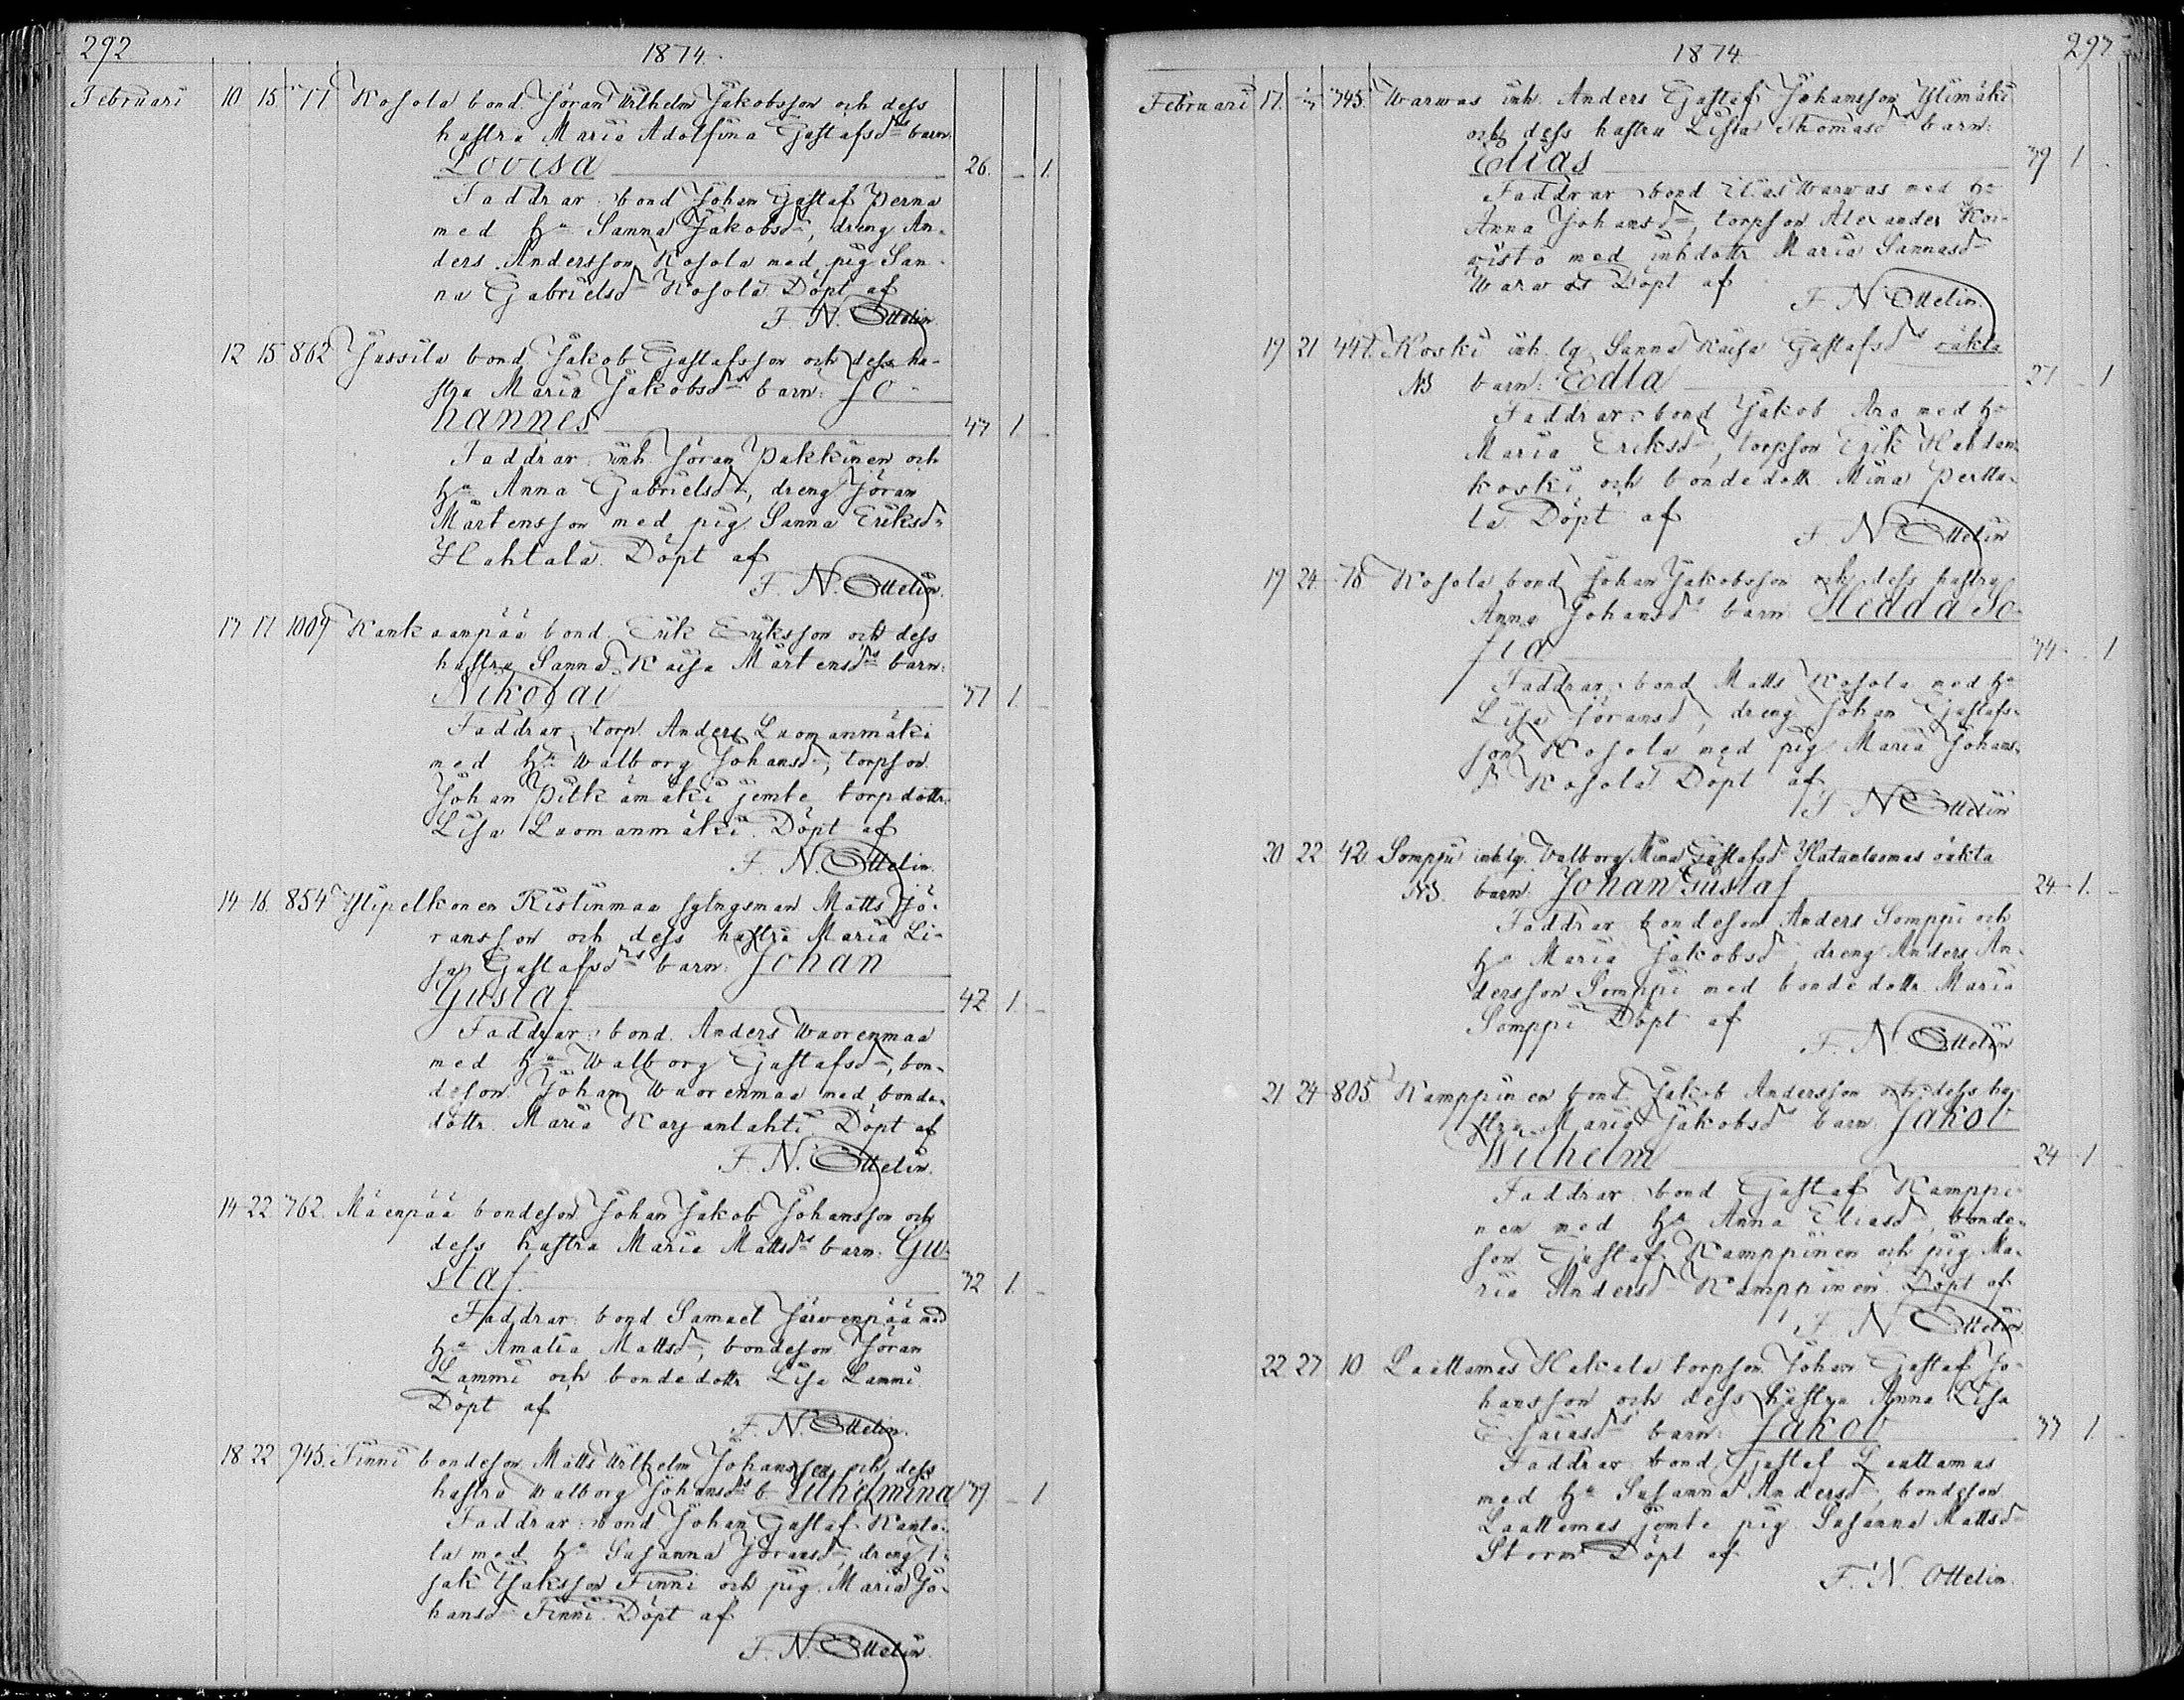 292
1874.
Februari 10 15 77 Kosola bond. Jöran Wilhelm Jakobsson och dess
hustru Maria Adolfina Gustafsdrs barn:
Lovisa 26. - 1.
Faddrar: bond Johan Gustaf Perna
med hu Sanna Jakobsdr, dreng An-
ders Andersson Kosola med pig San-
na Gabrielsd Kosola. Döpt af
F. N. Ottelin.
12 15 862 Jussila bond Jakob Gustafsson och dess hu-
stru Maria Jakobsdrs barn: Jo-
hannes 47 1 -
Faddrar: inh. Jöran Pakkinen och
hu Anna Gabrielsdr, dreng Jöran
Mårtensson med pig. Sanna Eriksdr
Hahtala. Döpt af
F. N. Ottelin.
17 1009 Kankaanpää bond Erik Eriksson och dess
hustru Sanna Kaisa Mårtensdrs barn:
Nikolai 37 1. -
Faddrar: torp. Anders Luomanmäki
med hu Walborg Johansdr, torpson
Johan Pitkämäki jemte torpdottr.
Lisa Luomanmäki. Döpt af
F. N. Ottelin.
14 16. 854 Ylipelkonen Ristinmaa sytngsman Matts Jö-
ransson och dess hustru Maria Li-
sa Gustafsdrs barn: Johan
Gustaf 42 1. -
Faddrar: bond. Anders Wuorenmaa
med hu Walborg Gustafsdr, bon-
deson Johan Wuorenmaa med bonde-
dottr. Maria Karjanlahti. Döpt af
F. N. Ottelin.
14 22 762. Mäenpää bondeson Johan Jakob Johansson och
dess hustru Maria Mattsdrs barn: Gu-
staf 32 1. -
Faddrar: bond Samuel Järvenpää med
hu Amalia Mattsdr, bondeson Jöran
Lammi och bondedottr Lisa Lammi.
Döpt af
F. N. Ottelin.
18 22 945. Finni bondeson Matts Wilhelm Johansson och dess
hustru Walborg Johansdrs b. Vilhelmina 39 - 1
Faddrar: bond Johan Gustaf Kanto-
la med hu Susanna Jöransdr, dreng I-
sak Isaksson Finni och pig. Maria Jo-
hansd Finni. Döpt af
F. N. Ottelin.
1874
293
Februari 17. 745. Warwas inh. Anders Gustaf Johansson Ylimäki
och dess hustru Lisa Thomasdrs barn:
Elias 39 1 -
Faddrar bond Elias Warwas med hu
Anna Johansdr, torpson Alexander Koi-
visto med inhdottr Maria Sannasdr
Warwas Döpt af
F. N. Ottelin.
19 21 447. Koski inh. lg Sanna Kaisa Gustafsdrs oäkta
NB barn: Edla 27 - 1
Faddrar: bond Jakob Ara med hu
Maria Eriksdr, torpson Erik Hahdan-
koski och bondedottr. Mina Pertta-
la. Döpt af
F. N. Ottelin
19 24 78 Kosola bond Johan Jakobsson och dess hustru
Anna Johansdrs barn Hedda So-
fia 34 - 1
Faddrar: bond Matts Kosola med hu
Lisa Jöransd, dreng Johan Gustafs-
son Kosola med pig Maria Johans-
dr Kosola. Döpt af
F. N. Ottelin
20 22 42 Somppi inh lg. Valborg Mina Gustafsd Hatanluomas oäkta
NB. barn. Johan Gustaf 24 - 1. -
Faddrar bondeson Anders Somppi och
hu Maria Jakobsd, dreng Anders An-
dersson Somppi med bondedottr Maria
Somppi Döpt af
F. N. Ottelin
21 24 805 Kamppinen bond Jakob Andersson och dess hu-
stru Maria Jakobsdrs barn Jakob
Wilhelm 24 - 1 -
Faddrar bond Gustaf Kamppi-
nen med hu Anna Eliasdr, bonde-
son Gustaf Kamppinen och pig. Ma-
ria Andersd Kamppinen. Döpt af
F. N. Ottelin
22 27 10 Luattamas Hakala torpson Johan Gustaf Jo-
hansson och dess hustru Anna Lisa
Esaiasdrs barn: Jakob 33 1 -
Faddrar bond Gustaf Luattamas
med hu Susanna Andersdr, bondeson
Luattamas jemte pig Susanna Mattsdr
Storm Döpt af
F. N. Ottelin.